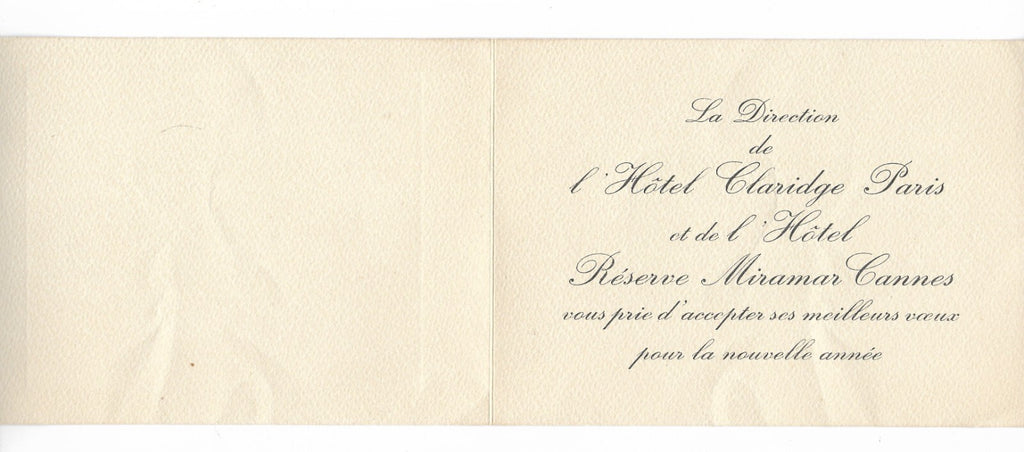 La Direction
de
l'Hôtel Claridge Paris
et de l'Hôtel
Réserve Miramar Cannes
vous prie d'accepter ses meilleurs vœux
pour la nouvelle année